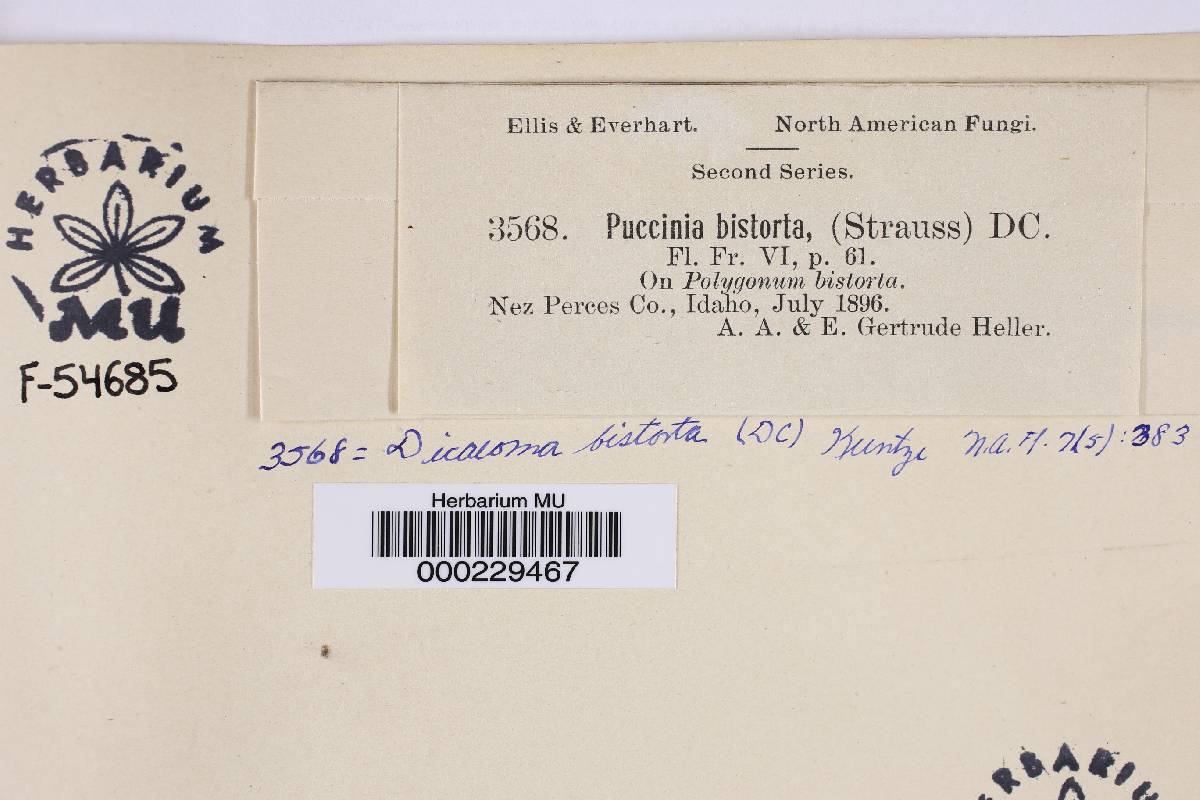 Ellis & Everhart. North American Fungi.
Second Series.
3568. Puccinia bistorta, (Strauss) DC.
Fl. Fr. VI, p. 61.
On Polygonum bistorta.
Nez Perces Co., Idaho, July 1896.
A. A. & E. Gertrude Heller.
HERBARIUM
MU
F-54685
3568 = Dicaeoma bistorta (DC) Kuntze N.A.Fl. 7(5):383
Herbarium MU
000229467
HERBARIU